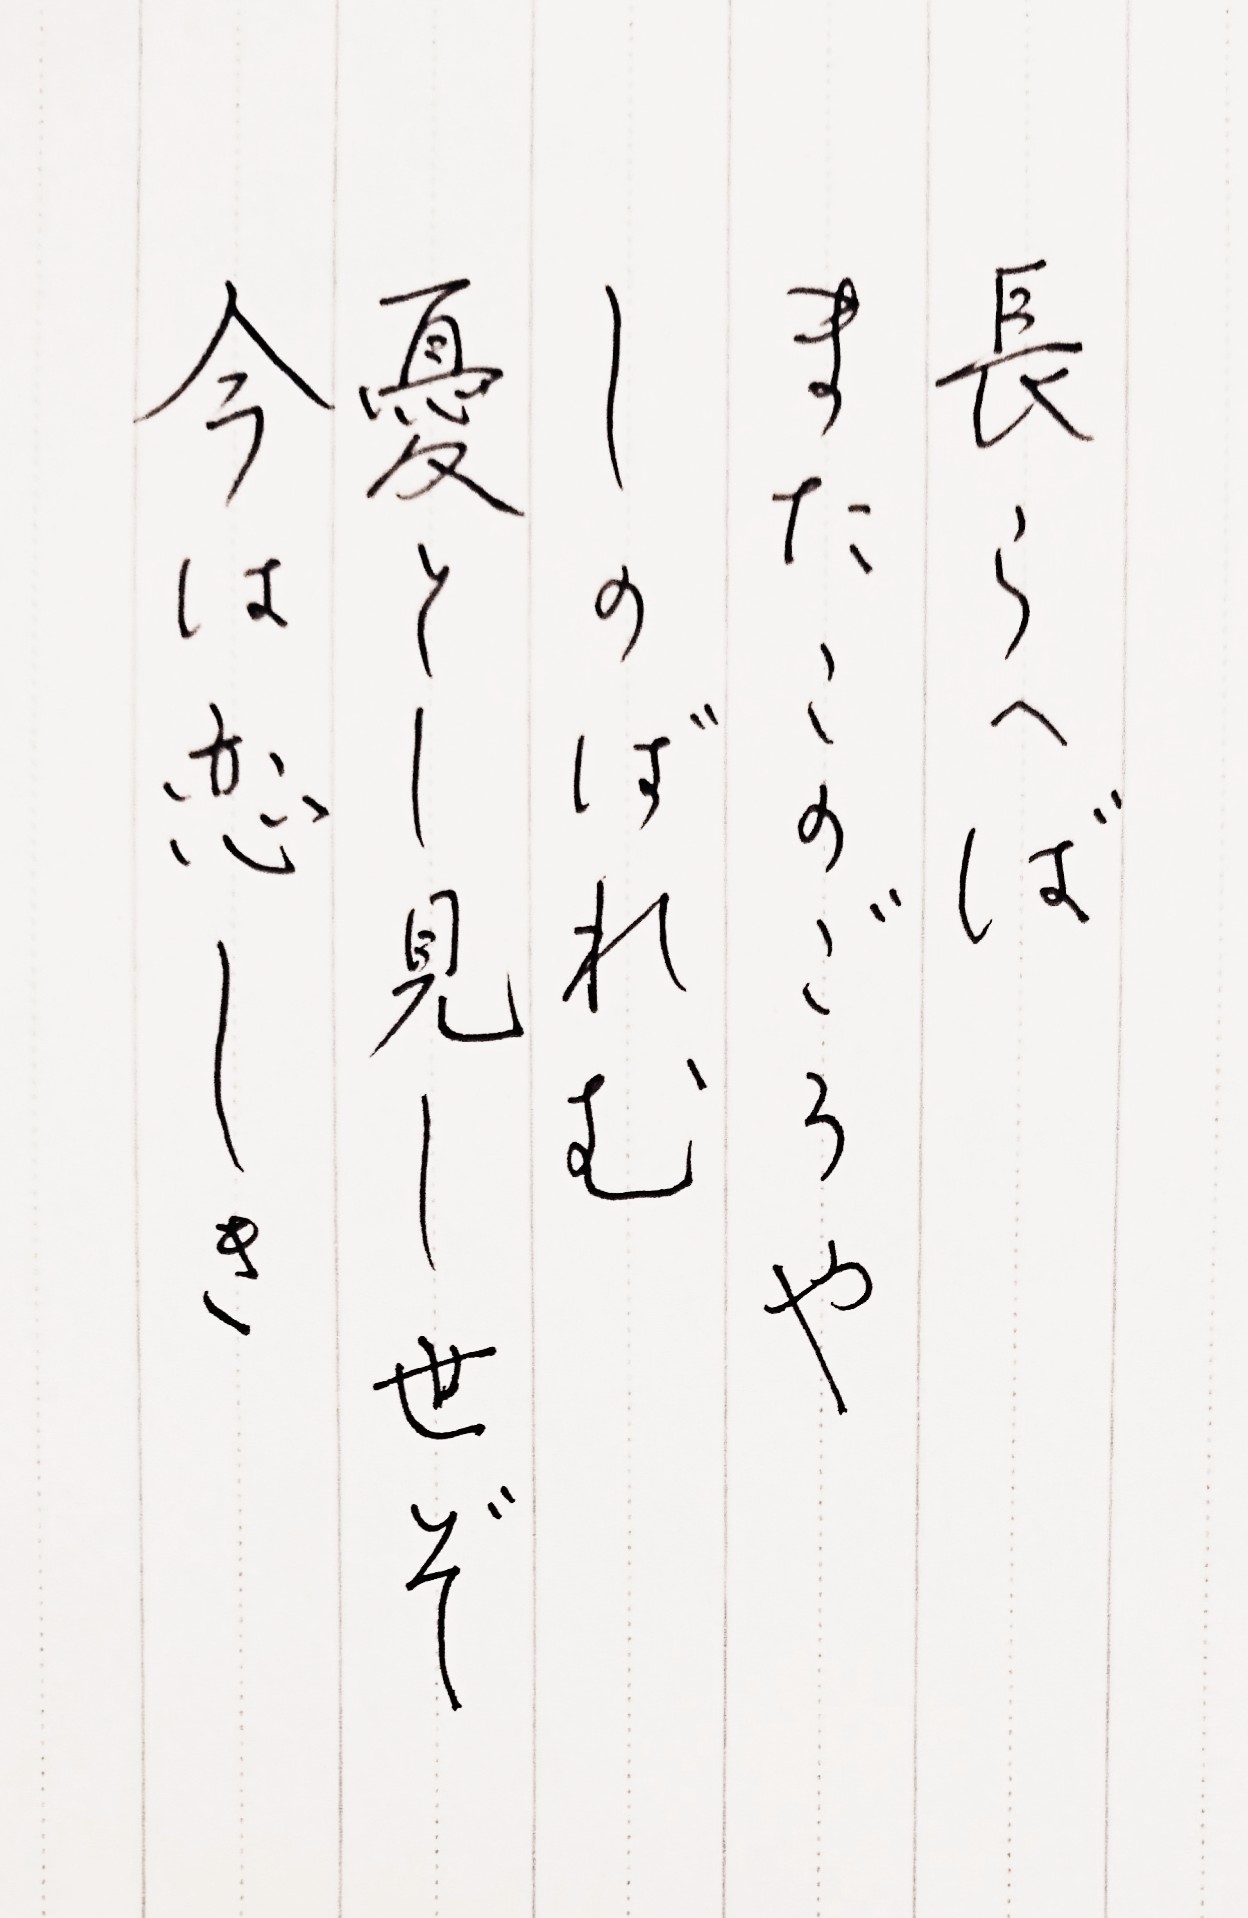 長らへば
またこのごろや
しのばれむ
憂とし見し世ぞ
今は恋しき